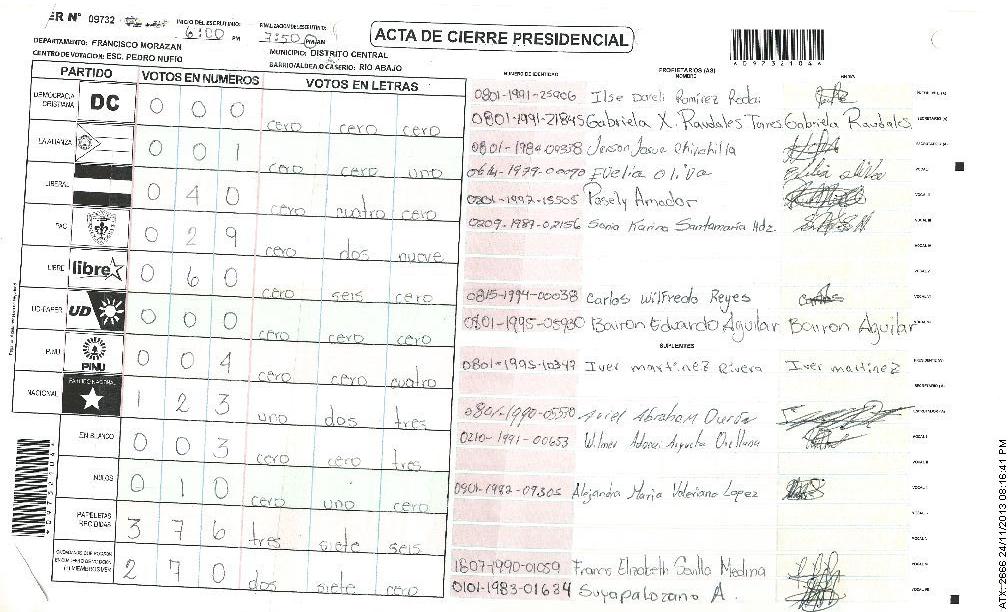 ER N° 09732
INICIO DEL ESCRUTINIO
6:00 PM
FINALIZACION ESCRUTINIO
7:50 PM
ACTA DE CIERRE PRESIDENCIAL
DEPARTAMENTO: FRANCISCO MORAZAN
MUNICIPIO: DISTRITO CENTRAL
CENTRO DE VOTACION: ESC. PEDRO NUFIO
BARRIO/ALDEA O CASERIO: RIO ABAJO
PARTIDO VOTOS EN NUMEROS VOTOS EN LETRAS
DEMOCRACIA CRISTIANA DC 0 0 0 cero cero cero
LA ALIANZA 0 0 1 cero cero uno
LIBERAL 0 4 0 cero cuatro cero
PAC 0 2 9 cero dos nueve
LIBRE libre 0 6 0 cero seis cero
UD-FAPER UD 0 0 0 cero cero cero
PINU PINU 0 0 4 cero cero cuatro
NACIONAL PARTIDO NACIONAL 1 2 3 uno dos tres
EN BLANCO 0 0 3 cero cero tres
NULOS 0 1 0 cero uno cero
PAPELETAS RECIBIDAS 3 7 6 tres siete seis
2 7 0 dos siete cero
NUMERO DE IDENTIDAD PROPIETARIOS (AS) NOMBRE FIRMA
0801-1991-25906 Ilse Ramirez
0801-1991-21845 Gabriela X. Raudales Torres Gabriela Raudales
0801-1984-09358 Jerson Josue Chinchilla
Evelia oliva
0801-1992-15505 Amador
0209-1987-02156 Sonia Karina Santamaria Hdz.
0815-1994-00038 Carlos Wilfredo Reyes Carlos
0801-1995-05930 Bairon Eduardo Aguilar Bairon Aguilar
SUPLENTES
0801-1995-10347 Iver martinez Rivera Iver martinez
0801-1990-05570 Ariel Abraham
0210-1991-00653 Wilmer Adonai Argueta Orellana
0801-1982-07305 Alejandra Maria Valeriano Lopez
1807-1990-01059 Francis Elizabeth Sevilla Medina
0101-1983-01634 Suyapa Lozano A.
ATX-2666 24/11/2013 08:16:41 PM